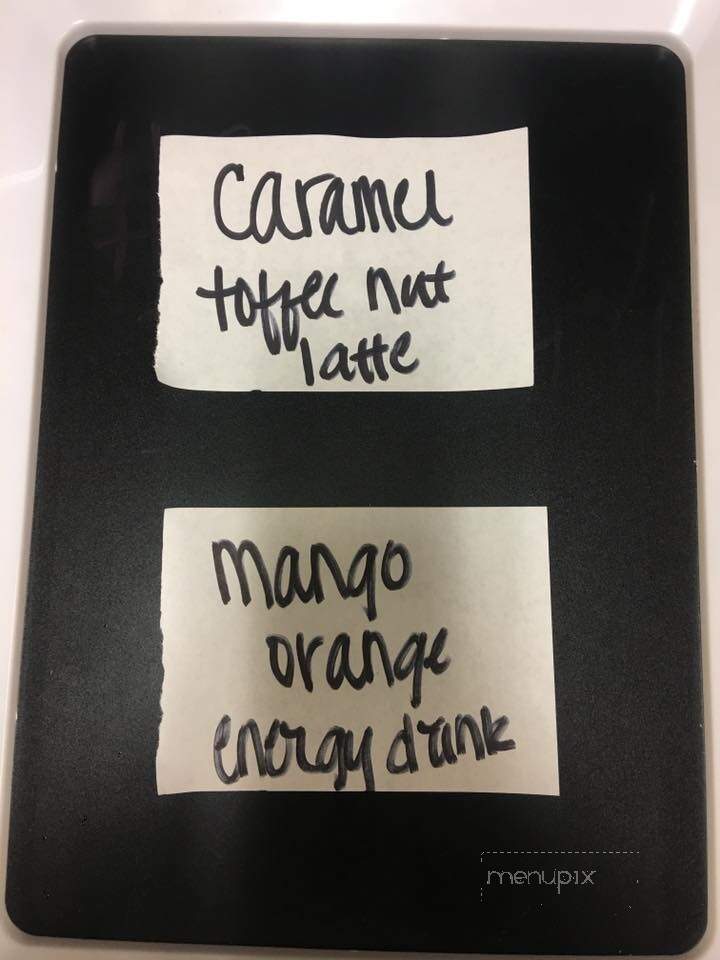 Caramel
toffee nut
latte
mango
orange
energy drink
menupix